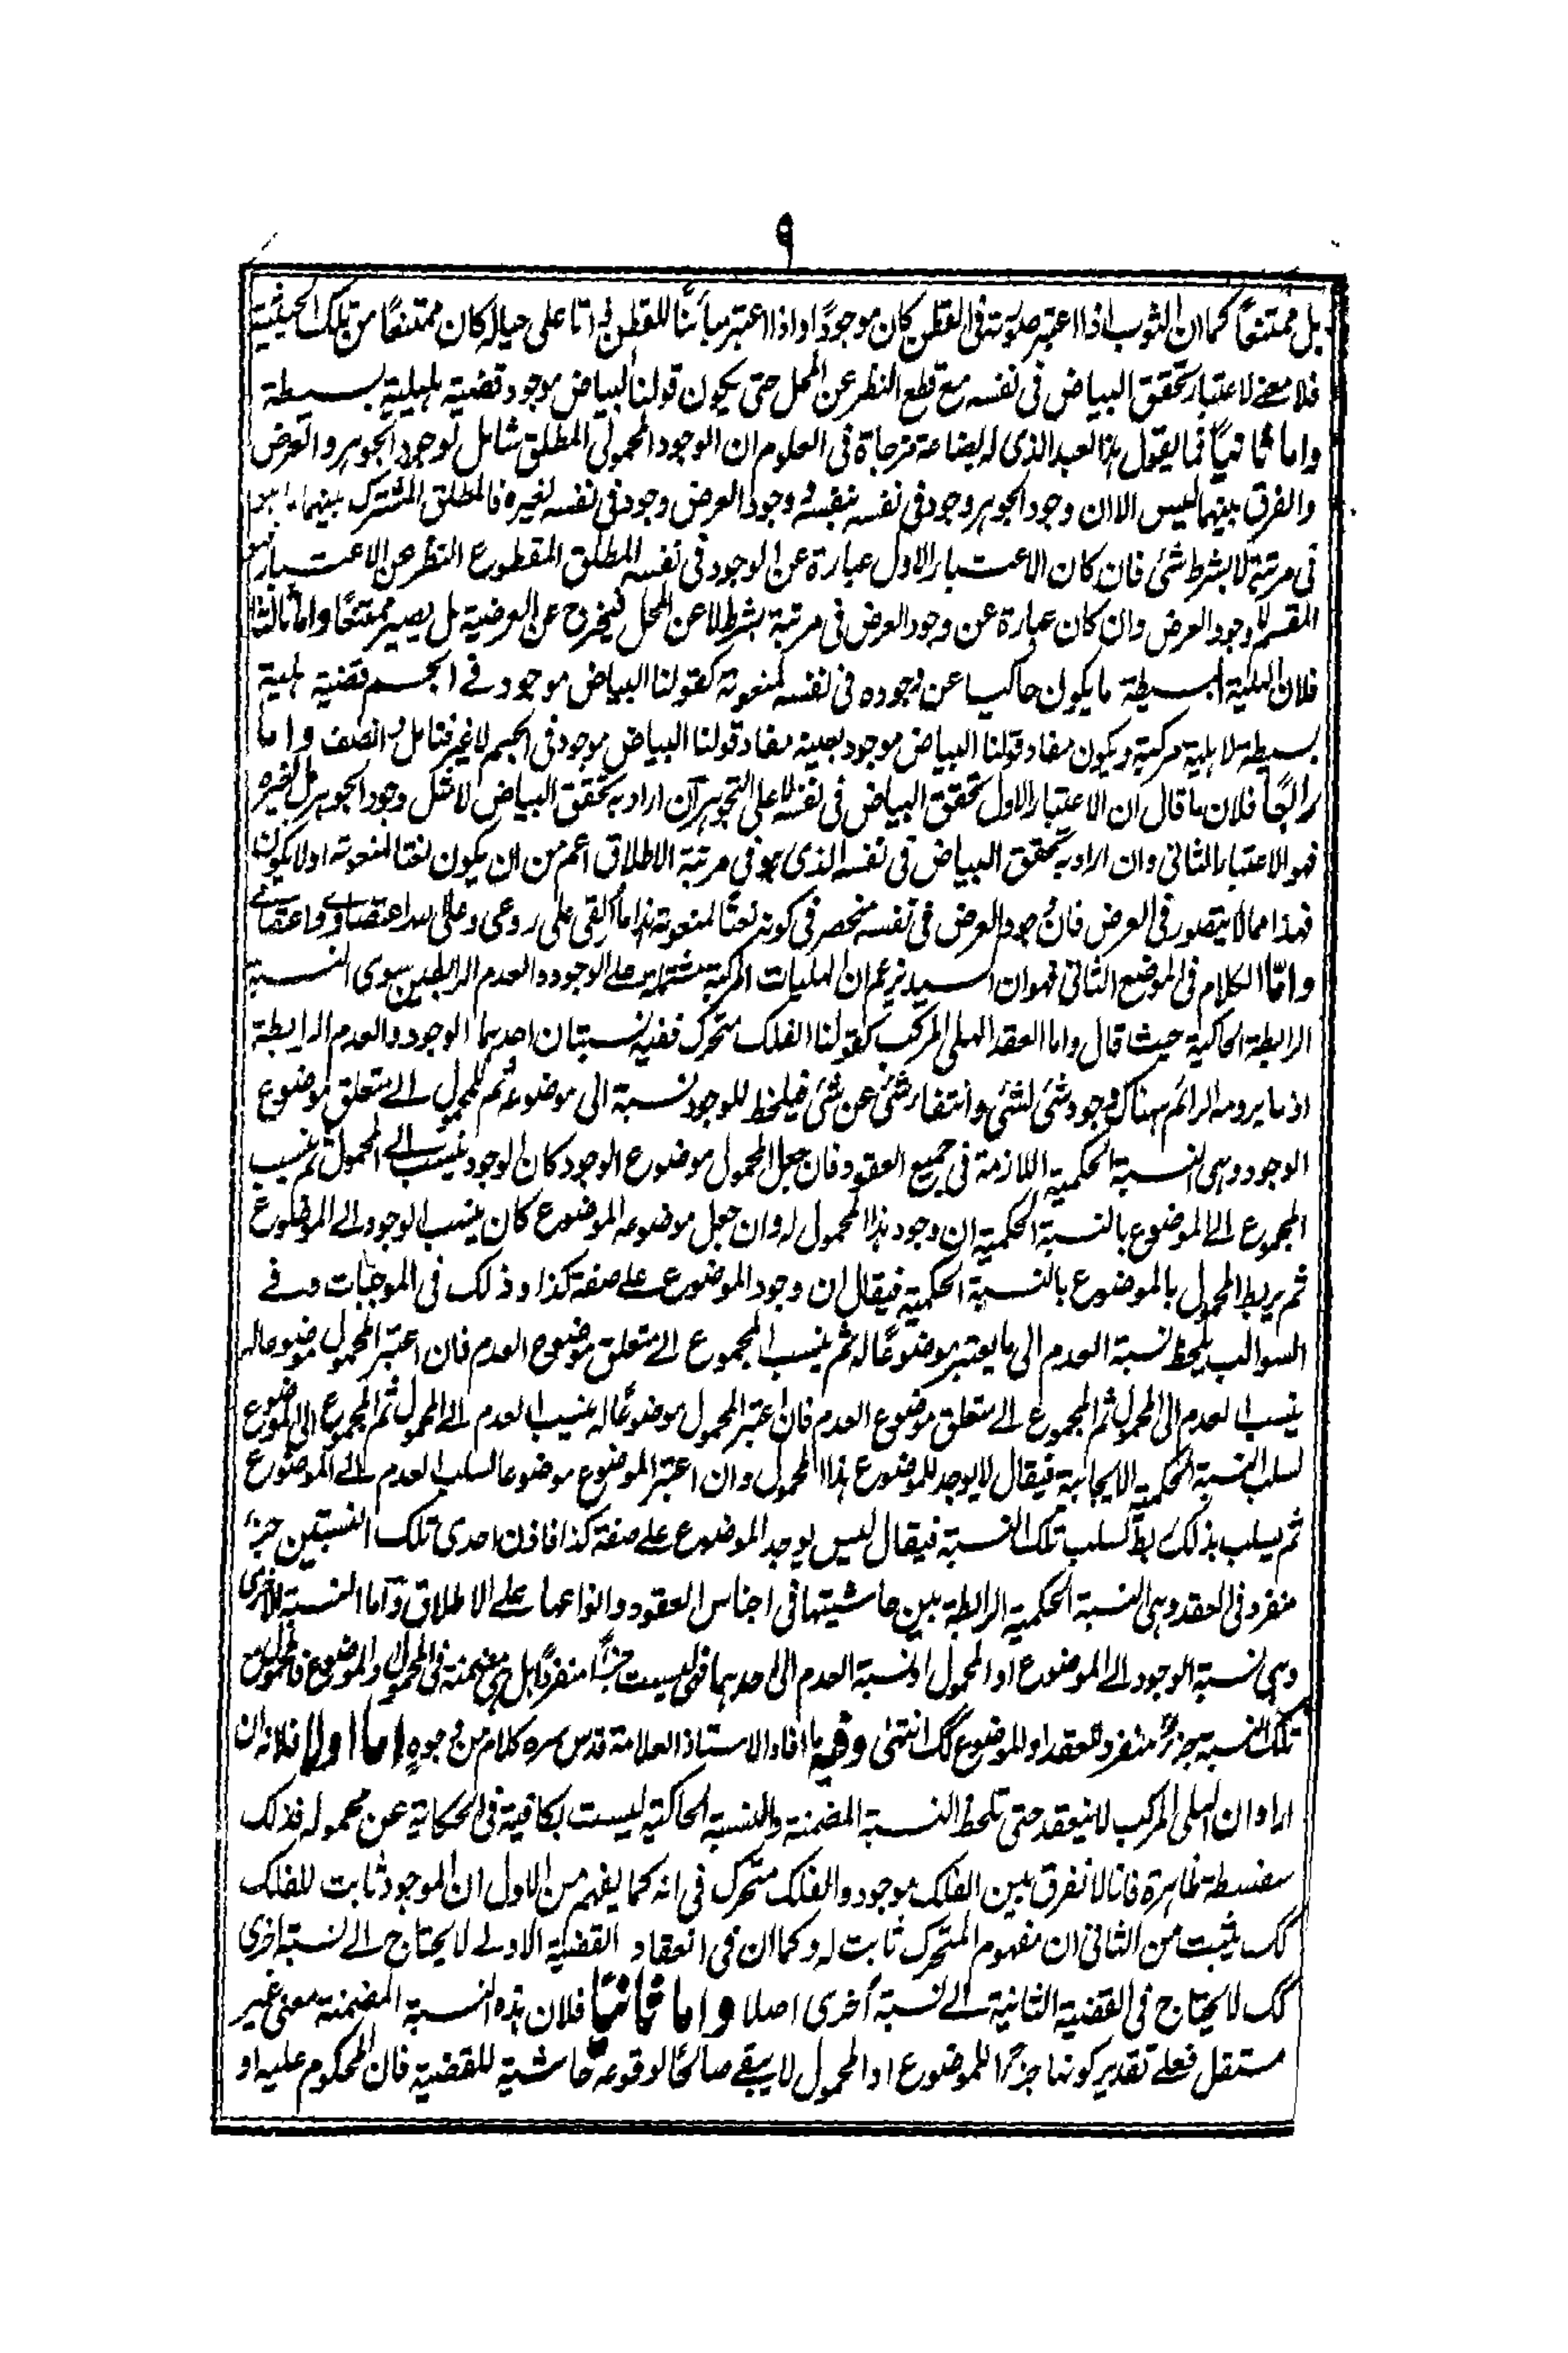 ٩
بل ممتنعًا كما ان الثوب اذا اعتبر صورته فى القطن كان موجودًا واذا اعتبر مبائنًا للقطن ذاتا على حياله كان ممتنعًا من تلك الحيثية
فلا معنے لاعتبار تحقق البياض فى نفسه مع قطع النظر عن المحل حتى يكون قولنا البياض موجود قضية هلية بسيطة
واما ثانيًا فما يقول هذا العبد الذى له بضاعة مزجاة فى العلوم ان الوجود المحمولى المطلق شامل لوجود الجوهر والعرض
والفرق بينهما ليس الا ان وجود الجوهر وجود فى نفسه بنفسه و وجود العرض وجود فى نفسه لغيره فالمطلق المشترك بينهما
فى مرتبة لا بشرط شئ فان كان الاعتبار الاول عبارة عن الوجود فى نفسه المطلق المقطوع النظر عن الاعتبارين فهو
المقسم لا وجود العرض وان كان عبارة عن وجود العرض فى مرتبة بشرط لا عن المحل فيخرج عن العرضية بل يصير ممتنعًا واما ثالثا
فلان الهلية البسيطة ما يكون حاكيا عن وجوده فى نفسه لمنعوته كقولنا البياض موجود فے الجسم قضية هلية
بسيطة لا هلية مركبة ويكون مفاد قولنا البياض موجود بعينه مفاد قولنا البياض موجود فى الجسم لا غير فتامل وانصف واما
رابعًا فلان ما قال ان الاعتبار الاول تحقق البياض فى نفسه لا على التجوهر ان اراد به تحقق البياض لا مثل وجود الجوهر بل لغيره
فهو الاعتبار الثانى وان اراد به تحقق البياض فى نفسه الذى هو فى مرتبة الاطلاق اعم من ان يكون نعتا لمنعوته او لا يكون
فهذا مما لا يتصور فى العرض فان وجود العرض فى نفسه منحصر فى كونه نعتًا لمنعوته هذا ما القى على روعى وعلى الله اعتضادے واعتمادے
وامّا الكلام فى الموضع الثانى فهو ان السيد زعم ان الهليات المركبة مشتملة على الوجود والعدم الرابطين سوى النسبة
الرابطة الحاكية حيث قال واما العقد الهلى المركب كقولنا الفلك متحرك ففيه نسبتان احدهما الوجود والعدم الرابطة
اذ ما يرومه الرائم هناك وجود شئ لشئ وانتفاء شئ عن شئ فيلحظ للوجود نسبة الى موضوعه ثم للمحمول الے متعلق موضوع
الوجود وهى النسبة الحكمية اللازمة فى جميع العقود فان جعل المحمول موضوع الوجود كان الوجود ينسب الے المحمول ثم ينسب
المجموع الے الموضوع بالنسبة الحكمية ان وجود هذا المحمول له وان جعل موضوعه الموضوع كان ينسب الوجود الے الموضوع
ثم يربط المحمول بالموضوع بالنسبة الحكمية فيقال ان وجود الموضوع علے صفة كذا وذلك فى الموجبات وفے
السوالب يلحظ نسبة العدم الى ما يعتبر موضوعًا له ثم ينسب المجموع الے متعلق موضوع العدم فان اعتبر المحمول موضوعا له
ينسب العدم الى المحمول ثم المجموع الے متعلق موضوع العدم فان اعتبر المحمول موضوعًا له ينسب العدم الے المحمول ثم المجموع الى الموضوع
لسلب النسبة الحكمية الايجابية فيقال لا يوجد للموضوع هذا المحمول وان اعتبر الموضوع موضوعا لسلب العدم الے الموضوع
ثم يسلب بذلك ربط لسلب تلك النسبة فيقال ليس يوجد الموضوع علے صفة كذا فاذن احدى تلك النسبتين جزء
منفرد فى العقد وهى النسبة الحكمية الرابطة بين حاشيتها فى اجناس العقود وانواعها علے الاطلاق واما النسبة الاخرى
وهى نسبة الوجود الے الموضوع او المحمول او نسبة العدم الى احدهما فهى ليست جزءًا منفردًا بل هى مضمنة فى المحمول والموضوع فالمحمول
تلك النسبة جزء منفرد للعقد او للموضوع كك انتهى وفيه ما افاد الاستاذ العلامة قدس سره كلام من وجوه اما اولا فلانه ان
اراد ان الهلى المركب لا ينعقد حتى تلحظ النسبة المضمنة والنسبة الحاكية ليست بكافية فى الحكاية عن محموله فذلك
سفسطة ظاهرة فانا لا نفرق بين الفلك موجود والفلك متحرك فى انه كما يفهم من الاول ان الموجود ثابت للفلك
كك يثبت من الثانى ان مفهوم المتحرك ثابت له وكما ان فى انعقاد القضية الاولے لا يحتاج الے نسبة اخرى
كك لا يحتاج فى القضية الثانية الے نسبة اخرى اصلا واما ثانيًا فلان هذه النسبة المضمنة معنى غير
مستقل فعلے تقدير كونها جزءًا للموضوع او المحمول لا يبقے صالحًا لوقوعه حاشية للقضية فان المحكوم عليه او